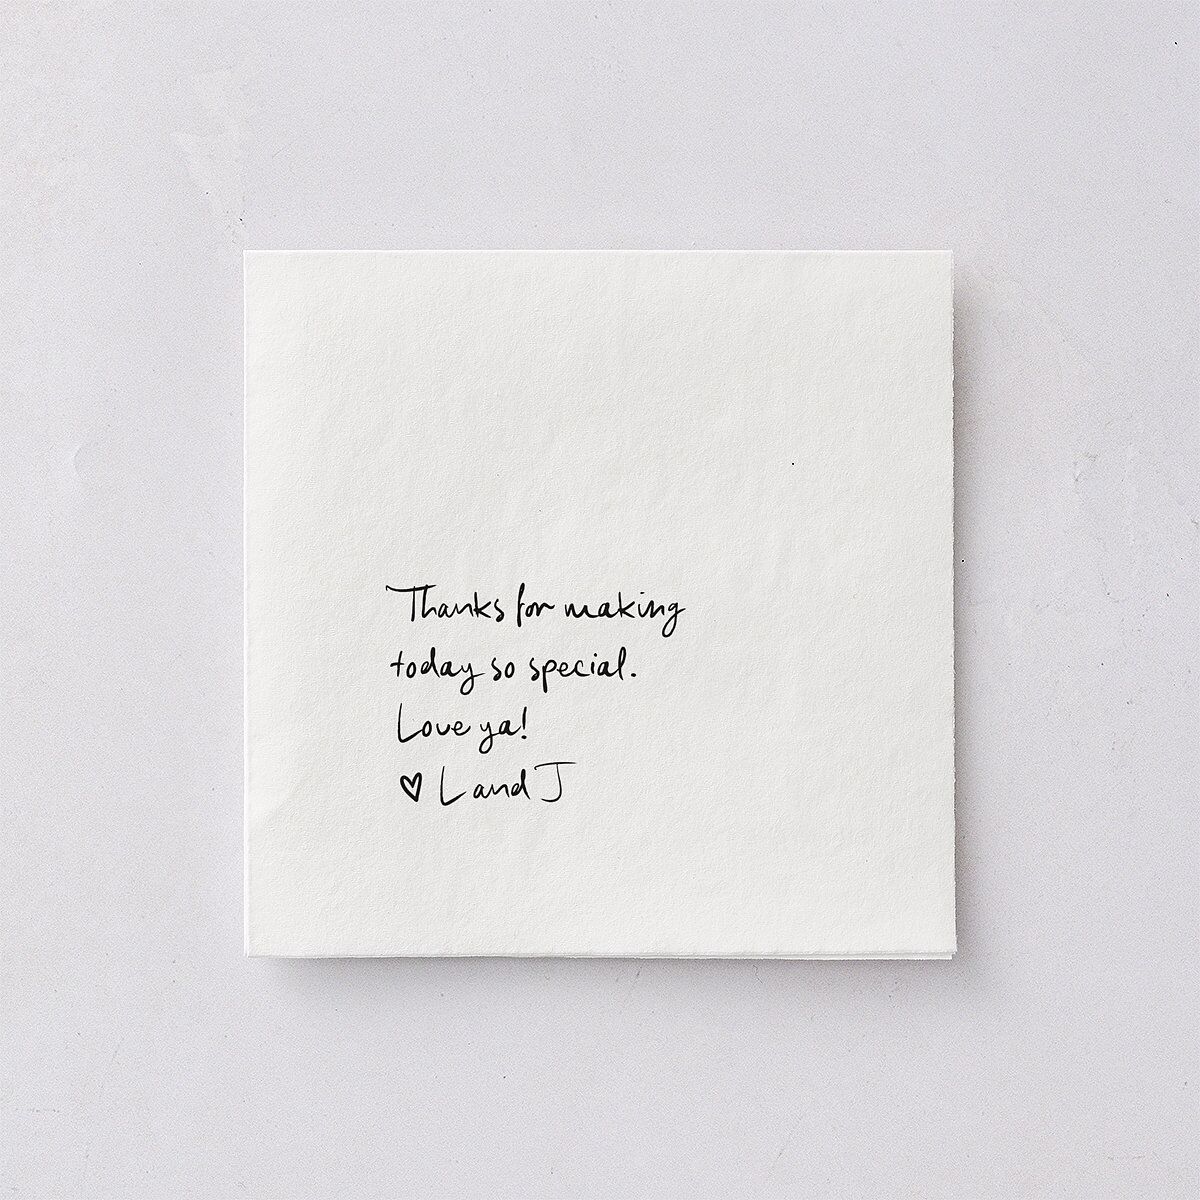 Thanks for making
today so special.
Love ya!
♥ L and J